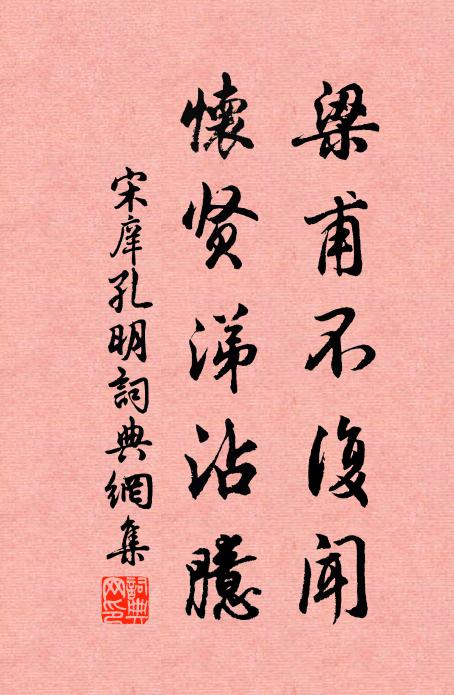 梁甫不復闻
懷贤涕沾臆
宋庠孔明詞典網集
詞典网印